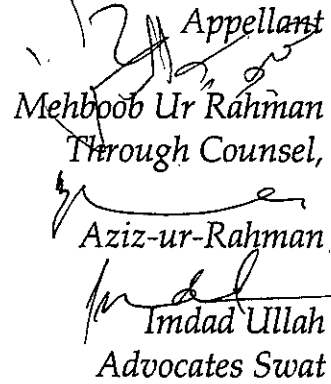 Appellant
Mehboob Ur Rahman
Through Counsel,
Aziz-ur-Rahman
Imdad Ullah
Advocates Swat